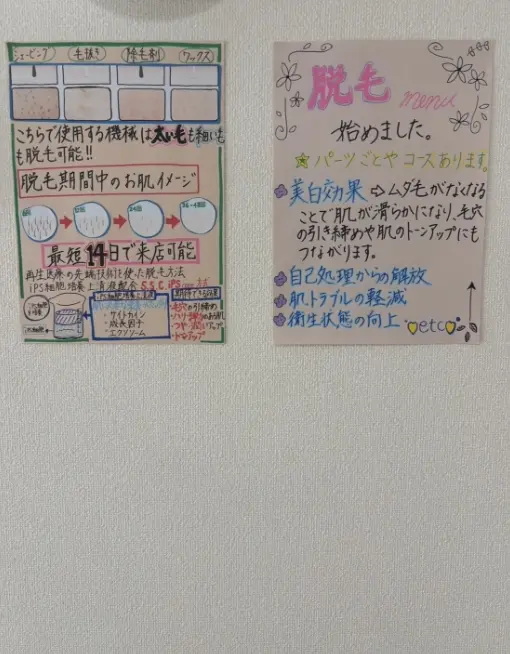 シェービング 毛抜き 除毛剤 ワックス
こちらで使用する機械は太い毛も細い毛
も脱毛可能!!
脱毛期間中のお肌イメージ
最短14日で来店可能
再生医療の先端技術を使った脱毛方法
iPS細胞培養上清液配合 S.S.C.iPS
・サイトカイン
・成長因子
・エクソソーム
脱毛 menu
始めました。
☆パーツごとやコースあります。
美白効果 ⇨ムダ毛がなくなる
ことで肌が滑らかになり、毛穴
の引き締めや肌のトーンアップにも
つながります。
自己処理からの解放
肌トラブルの軽減
衛生状態の向上 etc